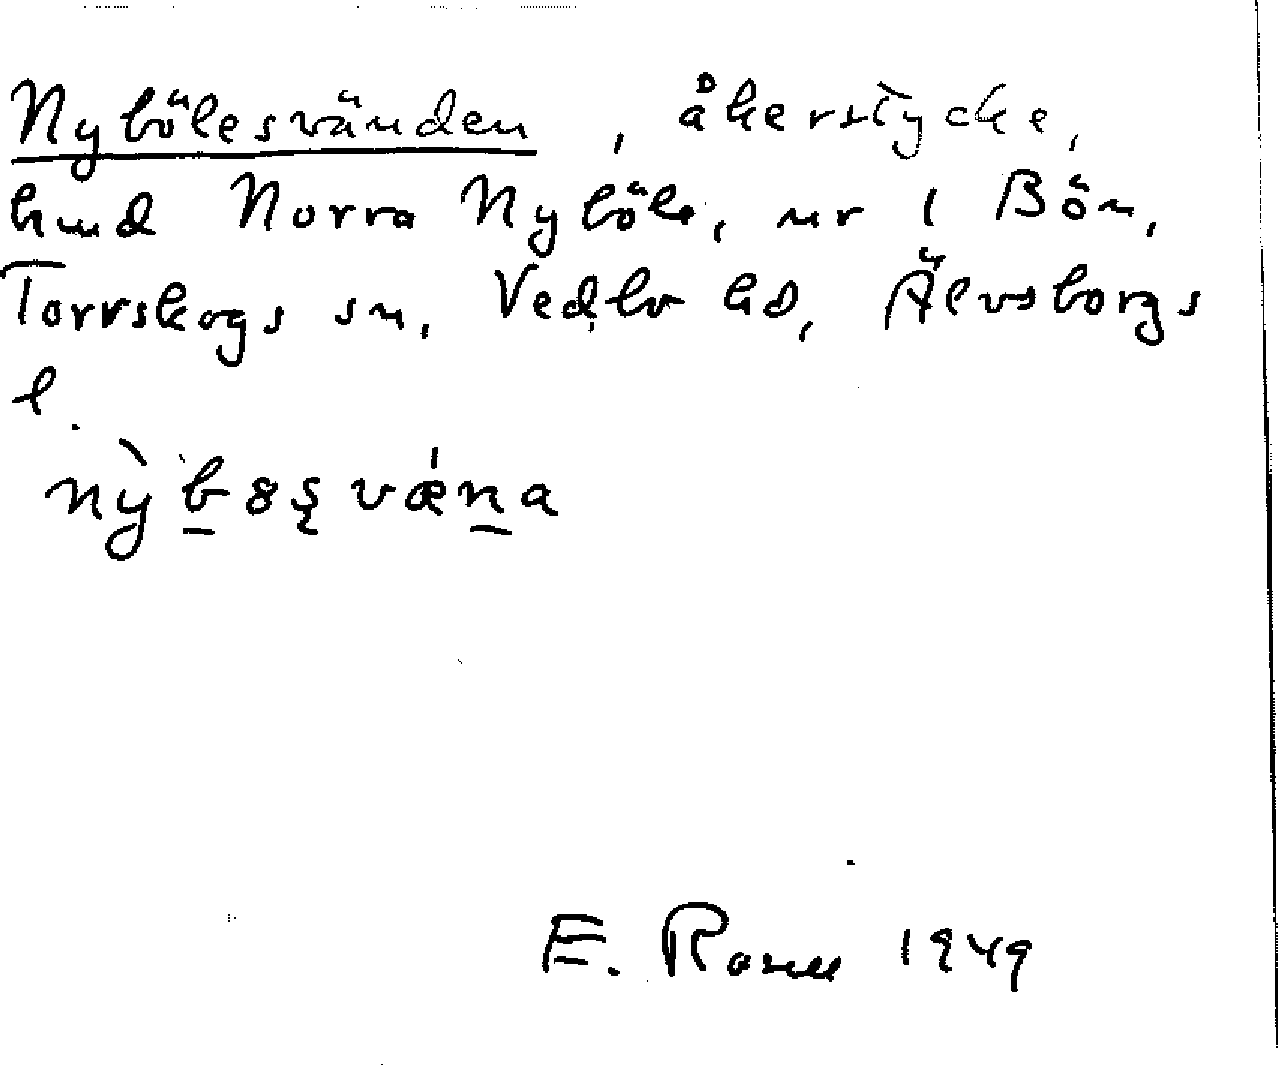 Nybölesvänden, åkerstycke,
hmd Norra Nyböle, nr 1 Bön,
Torrskogs sn, Vedbo hd, Älvsborgs
l.
E. Rosell 1949